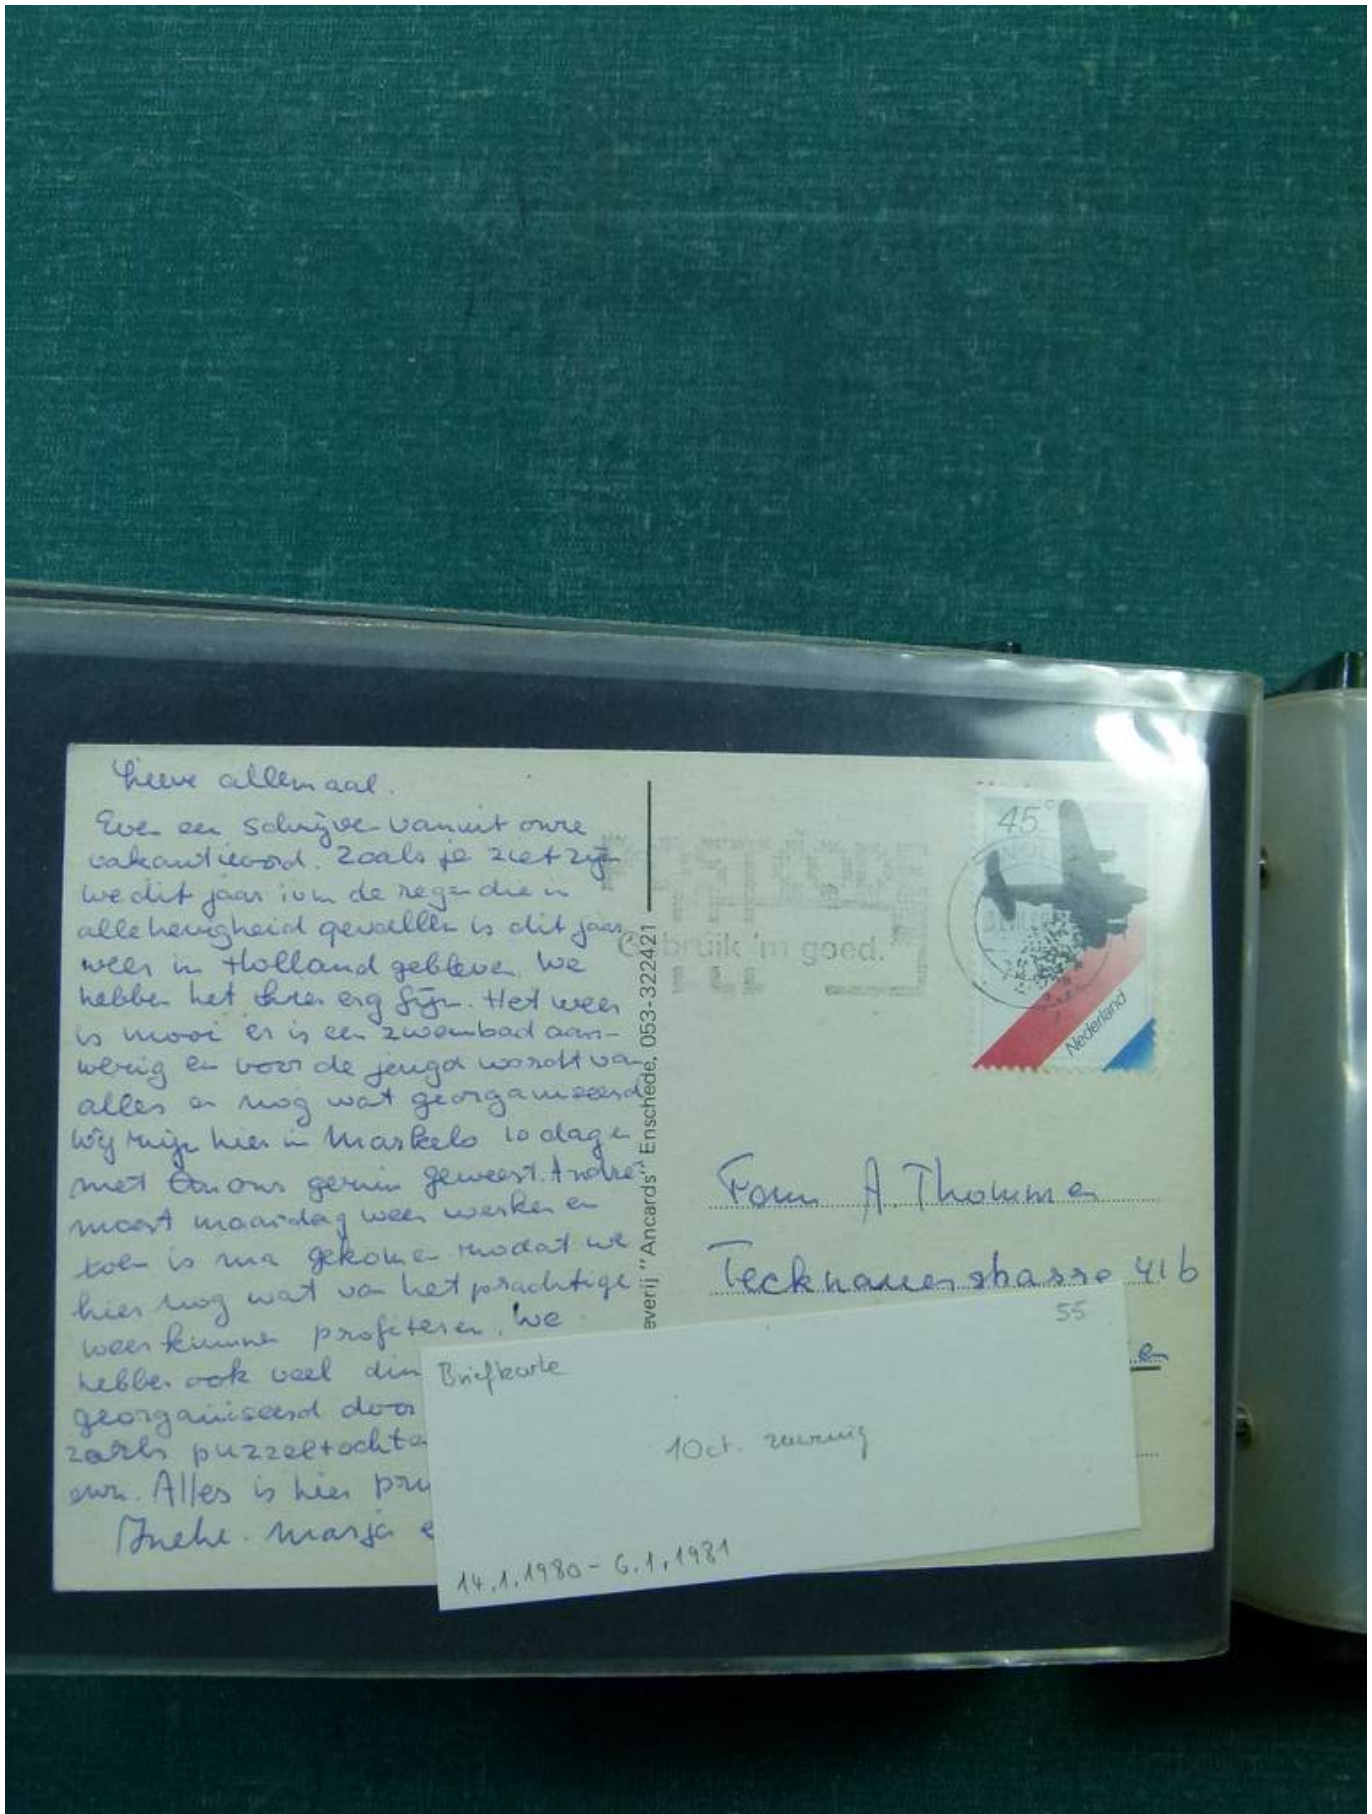 Lieve allemaal.
Even een schrijven vanuit onze
vakantieoord. Zoals je ziet zijn
we dit jaar ivm de regen die in
alle hevigheid gevallen is dit jaar
weer in Holland gebleven. We
hebben het hier erg fijn. Het weer
is mooi er is een zwembad aan-
wezig en voor de jeugd wordt van
alles en nog wat georganiseerd
Wij zijn hier in Markelo 10 dagen
met ons gezin geweest. André
moest maandag weer werken en
toen is ma gekomen zodat we
hier nog wat van het prachtige
weer kunnen profiteren. We
hebben ook veel din
georganiseerd door
zoals puzzeltochte
enz. Alles is hier pri
Ineke. Marja e
everij "Ancards" Enschede, 053-322421
POSTCODE
Gebruik 'm goed.
45c
Nederland
A. Thommen
Tecknauerstrasse 41b
en
55
Briefkarte
10ct. zuwenig
14.1.1980 - 6.1.1981